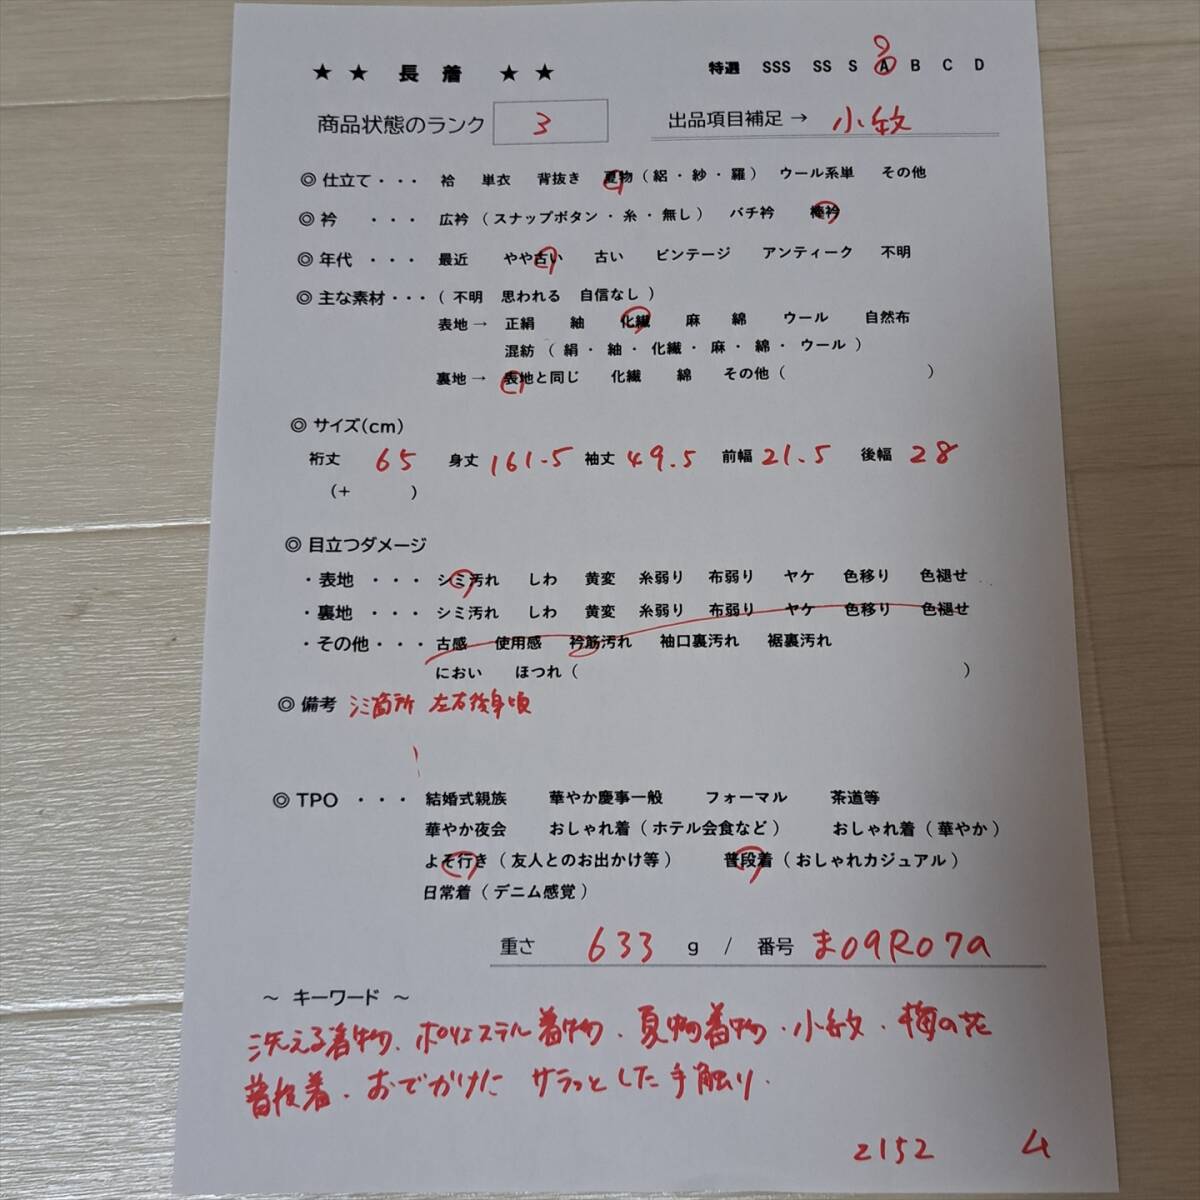 ★ ★ 長 着 ★ ★
特選 SSS SS S A B C D
商品状態のランク 3
出品項目補足→ 小紋
◎ 仕立て・・・ 袷 単衣 背抜き 夏物（絽・紗・羅） ウール系単 その他
◎ 衿 ・・・ 広衿（スナップボタン・糸・無し） バチ衿 棒衿
◎ 年代 ・・・ 最近 やや古い 古い ビンテージ アンティーク 不明
◎ 主な素材・・・（不明 思われる 自信なし）
表地→ 正絹 紬 化繊 麻 綿 ウール 自然布
混紡（絹・紬・化繊・麻・綿・ウール）
裏地→ 表地と同じ 化繊 綿 その他（ ）
◎ サイズ(cm)
裄丈 65 身丈 161.5 袖丈 49.5 前幅 21.5 後幅 28
（+ ）
◎ 目立つダメージ
・表地 ・・・ シミ汚れ しわ 黄変 糸弱り 布弱り ヤケ 色移り 色褪せ
・裏地 ・・・ シミ汚れ しわ 黄変 糸弱り 布弱り ヤケ 色移り 色褪せ
・その他・・・ 古感 使用感 衿筋汚れ 袖口裏汚れ 裾裏汚れ
におい ほつれ（ ）
◎ 備考 シミ箇所 左右後身頃
◎ TPO ・・・ 結婚式親族 華やか慶事一般 フォーマル 茶道等
華やか夜会 おしゃれ着（ホテル会食など） おしゃれ着（華やか）
よそ行き（友人とのお出かけ等） 普段着（おしゃれカジュアル）
日常着（デニム感覚）
重さ 633 g / 番号 ま09R07a
～ キーワード ～
洗える着物、ポリエステル着物、夏物着物・小紋・梅の花
普段着・おでかけに サラっとした手触り.
2152 ム